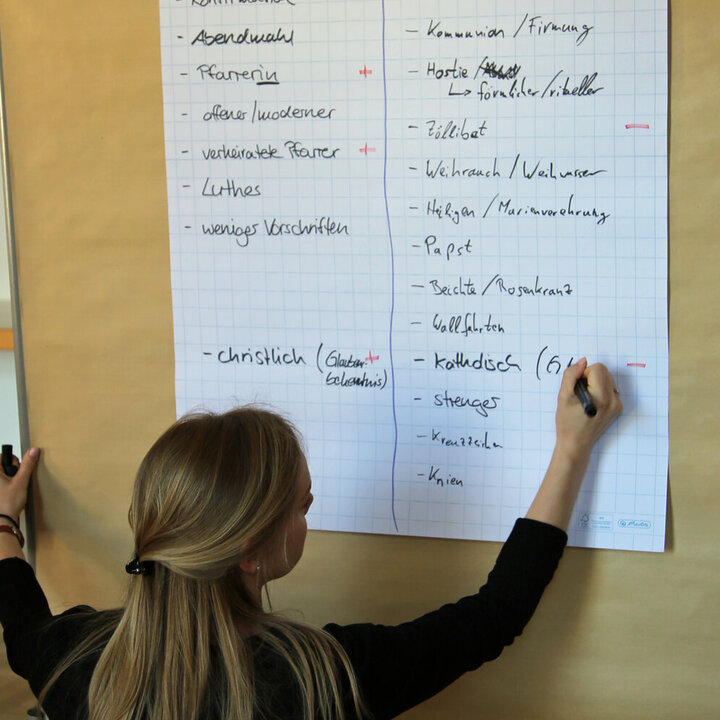 - Abendmahl
- Pfarrerin +
- offener/moderner
- verheiratete Pfarrer +
- Luthes
- weniger Vorschriften
- christlich (Glauben +
bekenntnis)
- Kommunion / Firmung
- Hostie /
↳ förmlicher/ritueller
- Zöllibat -
- Weihrauch / Weihwasser
- Heiligen / Marienverehrung
- Papst
- Beichte / Rosenkranz
- Wallfahrten
- katholisch (G -
- strenger
- Kreuzzeichen
- Knien